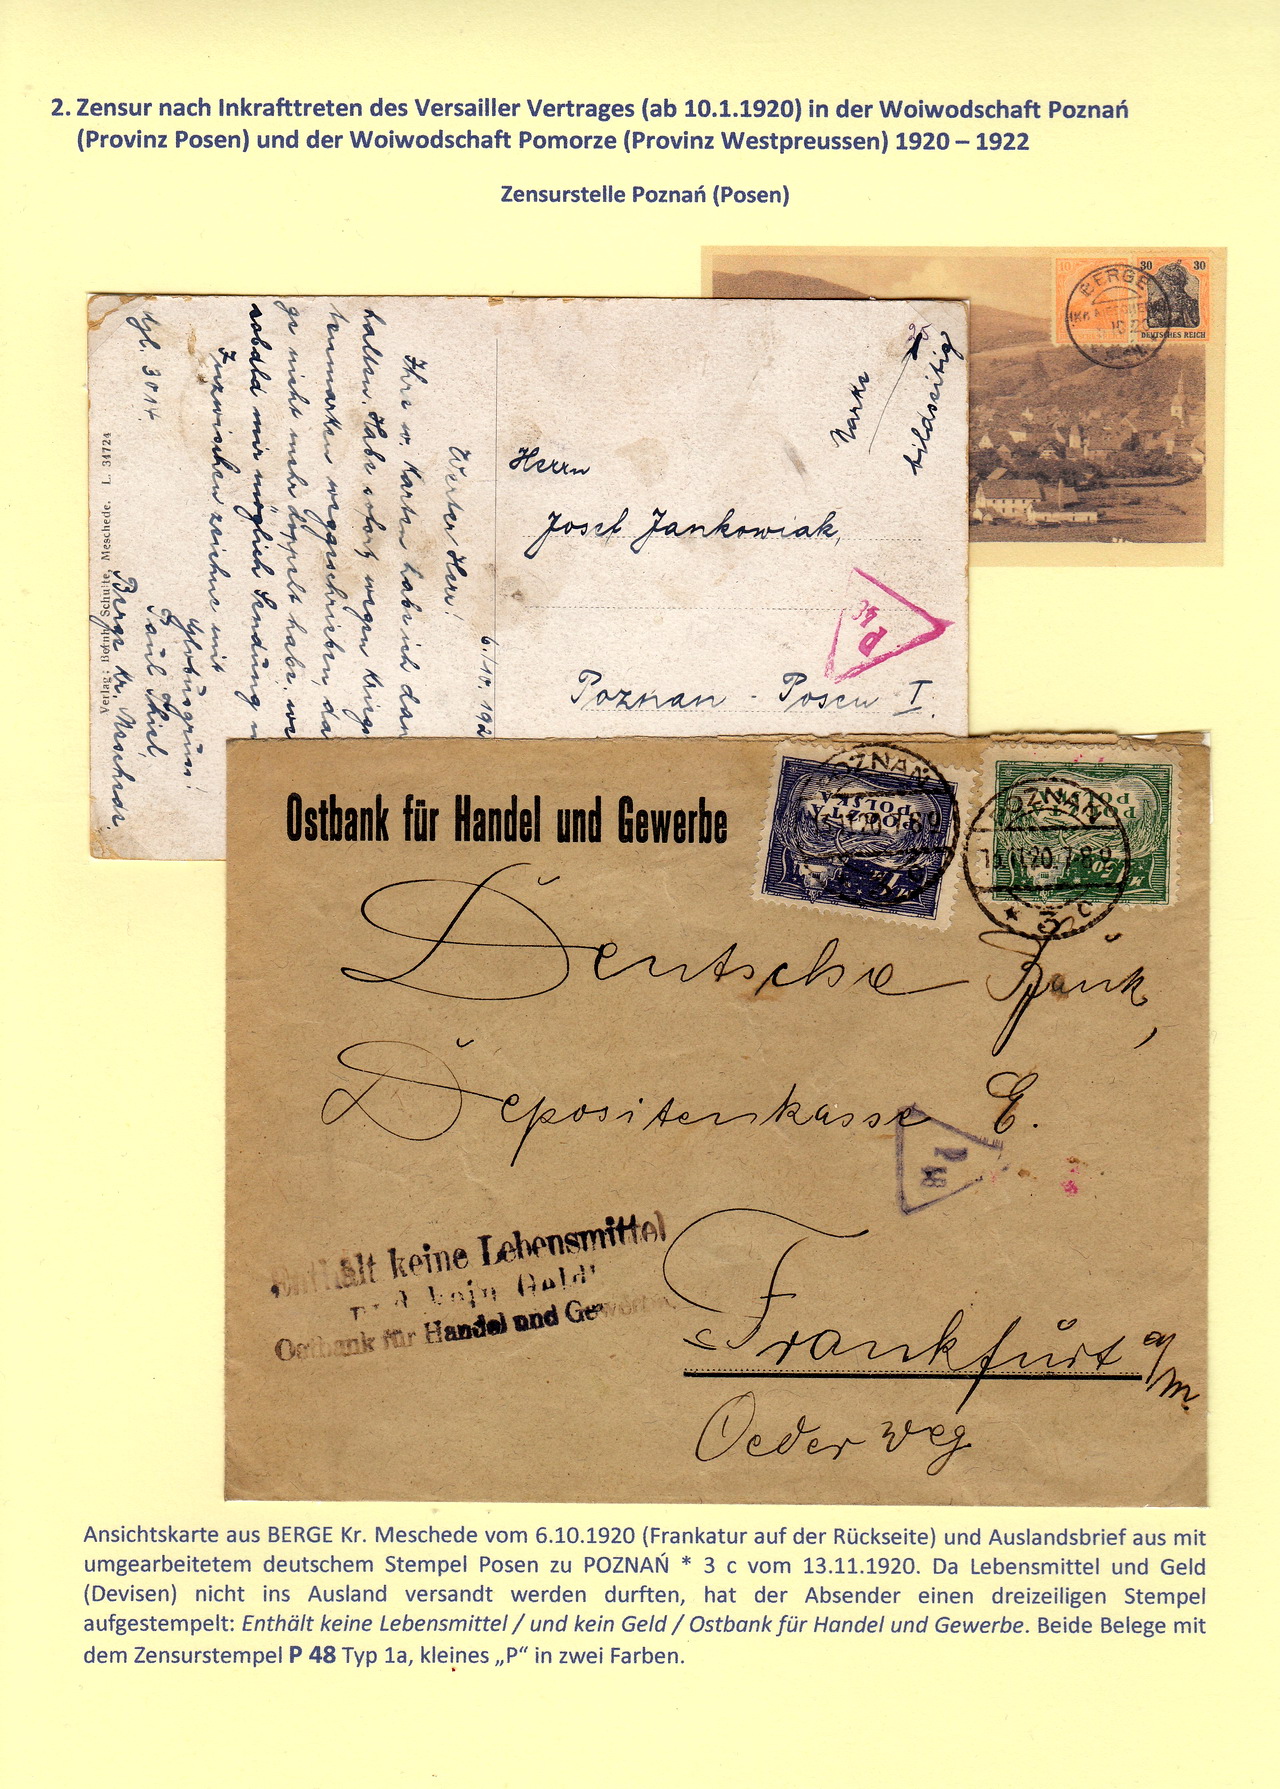 2. Zensur nach Inkrafttreten des Versailler Vertrages (ab 10.1.1920) in der Woiwodschaft Poznań
(Provinz Posen) und der Woiwodschaft Pomorze (Provinz Westpreussen) 1920 – 1922
Zensurstelle Poznań (Posen)
BERGE
10 30 30
DEUTSCHES REICH
Marke
bildseitig
Herrn
Josef Jankowiak,
Poznan - Posen I.
P 48
6./10. 192
Werter Herr!
Ihre w. Karten habe ich dan
halten. Habe sofort wegen Kriegs
tenmarken weggeschrieben, da
ge nicht mehr doppelt habe.
sobald mir möglich Sendung
Inzwischen zeichne mit
Globusgruss!
Paul Thiel
Berge Kr. Meschede.
Gl. 3014.
Verlag: Bernh. Schulte, Meschede. L. 34724
Ostbank für Handel und Gewerbe
POCZTA
POLSKA
POZNAŃ
13.11.20.7-8.9
* 3 c
Deutsche Bank,
Depositenkasse E.
P 48
Enthält keine Lebensmittel
und kein Geld!
Ostbank für Handel und Gewerbe
Frankfurt a/M.
Oeder Weg
Ansichtskarte aus BERGE Kr. Meschede vom 6.10.1920 (Frankatur auf der Rückseite) und Auslandsbrief aus mit
umgearbeitetem deutschem Stempel Posen zu POZNAŃ * 3 c vom 13.11.1920. Da Lebensmittel und Geld
(Devisen) nicht ins Ausland versandt werden durften, hat der Absender einen dreizeiligen Stempel
aufgestempelt: Enthält keine Lebensmittel / und kein Geld / Ostbank für Handel und Gewerbe. Beide Belege mit
dem Zensurstempel P 48 Typ 1a, kleines „P“ in zwei Farben.